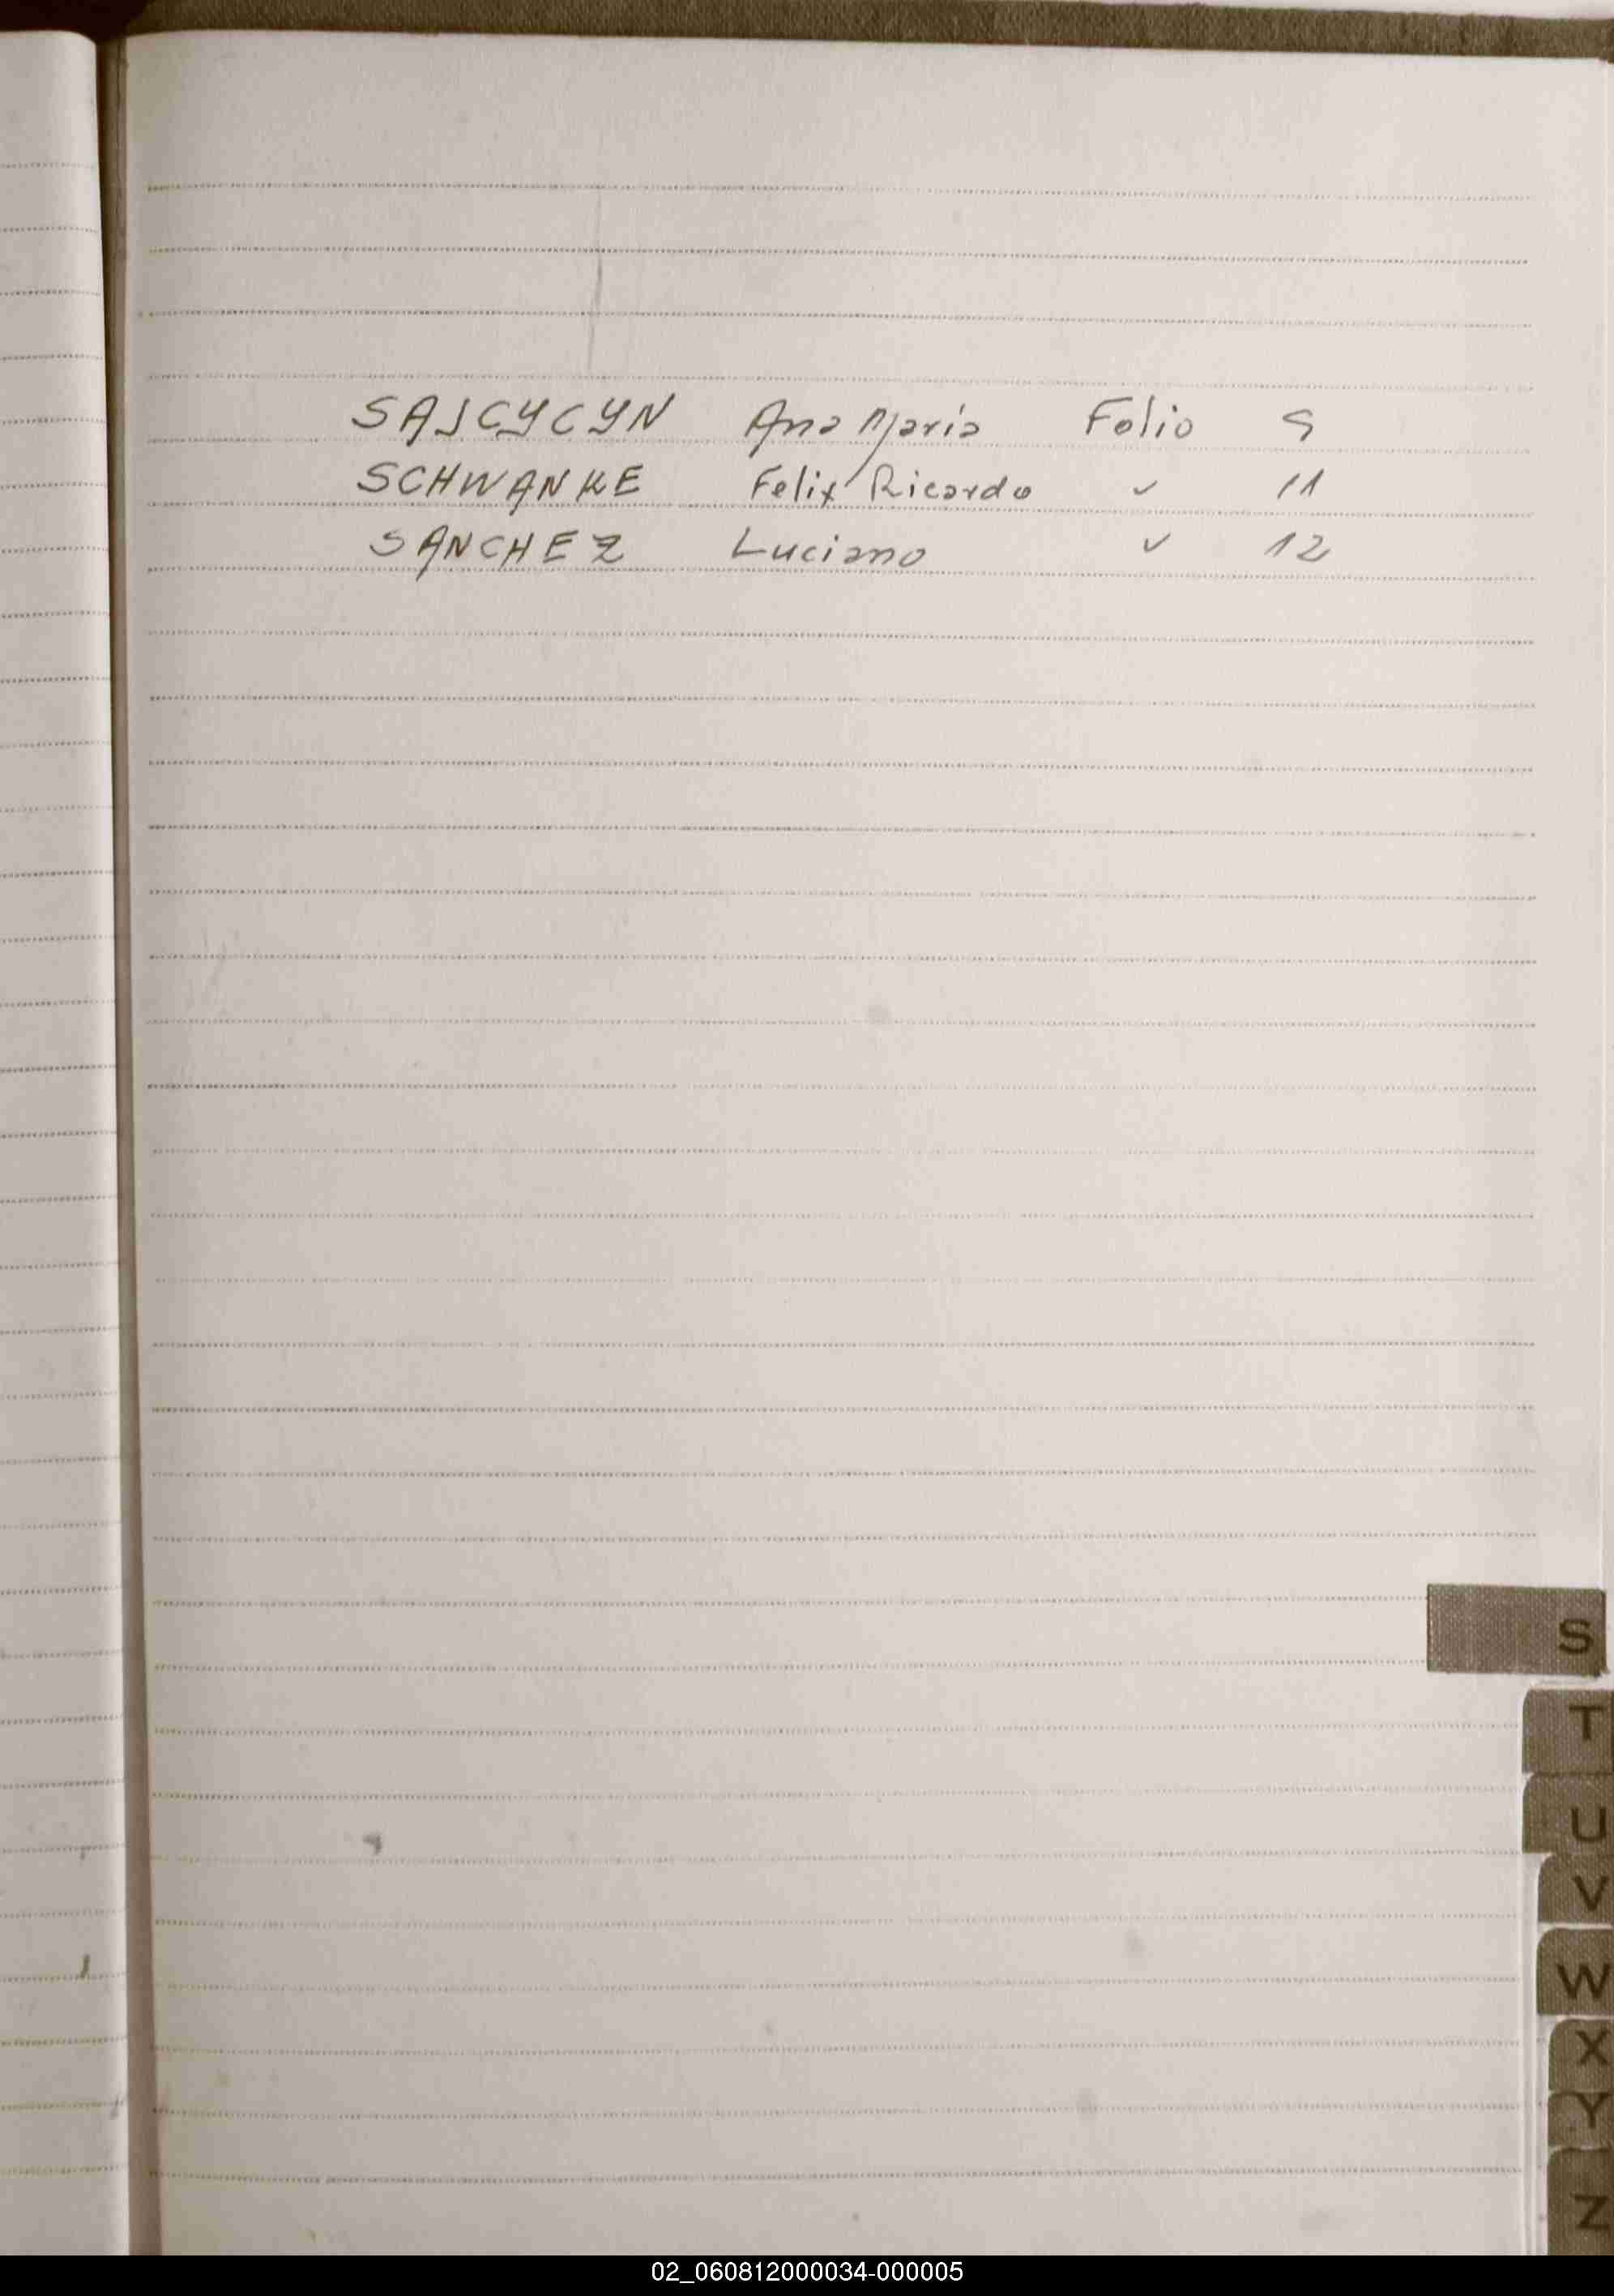 SAJCYCYN Ana María Folio 9
SCHWANKE Felix Ricardo ✓ 11
SANCHEZ Luciano ✓ 12
S
T
U
V
W
X
Y
Z
02_060812000034-000005